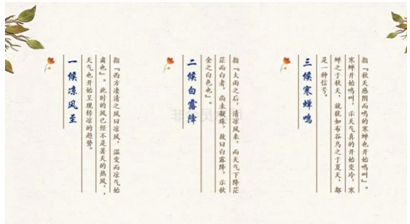 一候凉风至
指『西方凄清之风曰凉风，温变而凉气始
肃也』。此时的风已经不是夏天的热风，
天气也开始呈现转凉的趋势。
二候白露降
指『大雨之后，清凉风来，而天气下降茫
茫而白者，尚未凝珠，故曰白露降，示秋
金之白色也』。
三候寒蝉鸣
指『秋天感阴而鸣的寒蝉也开始鸣叫』。
寒蝉开始鸣叫，示天气真的开始变冷，寒
蝉之于秋天，就犹如布谷鸟之于夏天，都
是一种信